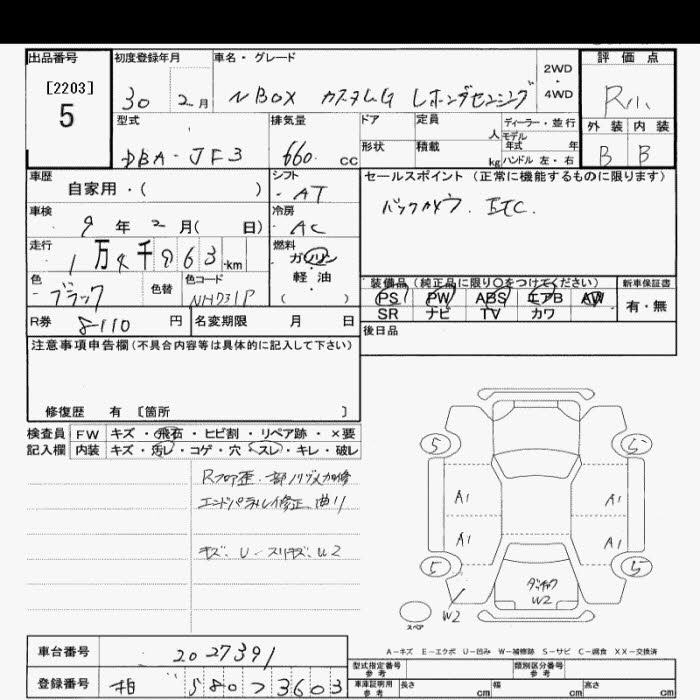 出品番号 初度登録年月 車名・グレード 2WD・4WD 評価点
[2203]
5
30 2月 N BOX カスタムG Lホンダセンシング R
型式 排気量 ドア 定員 人 ディーラー・並行 外装 内装
モデル年式 年
DBA-JF3 660 cc 形状 積載 kg ハンドル 左・右 B B
車歴 シフト セールスポイント (正常に機能するものに限ります)
自家用・( ) AT
バックカメラ. ETC.
車検 冷房
9年 2月( 日) AC
走行 燃料
1万 千 963km ガソリン・軽油 ( )
色 色替 色コード
ブラック NH731P
装備品 (純正品に限り〇をつけてください) 新車保証書
PS PW ABS エアB AW 有・無
SR ナビ TV カワ
R券 8110 円 名変期限 月 日
後日品
注意事項申告欄(不具合内容等は具体的に記入して下さい)
修復歴 有 [箇所 ]
検査員 FW キズ・飛石・ヒビ割・リペア跡・×要
記入欄 内装 キズ・汚レ・コゲ・穴・スレ・キレ・破レ
Rフロア歪
エンドパネル修正 曲り
キズ、U スリキズ、W2
5 5
A1 A1
A1 A1
5 5
W2
W2
スペア
A-キズ E-エクボ U-凹み W-補修跡 S-サビ C-腐食 XX-交換済
車台番号 2027391
型式指定番号 参考 類別区分番号 参考
登録番号 柏 580 3603
車庫証明用 参考 長さ cm 幅 cm 高さ cm